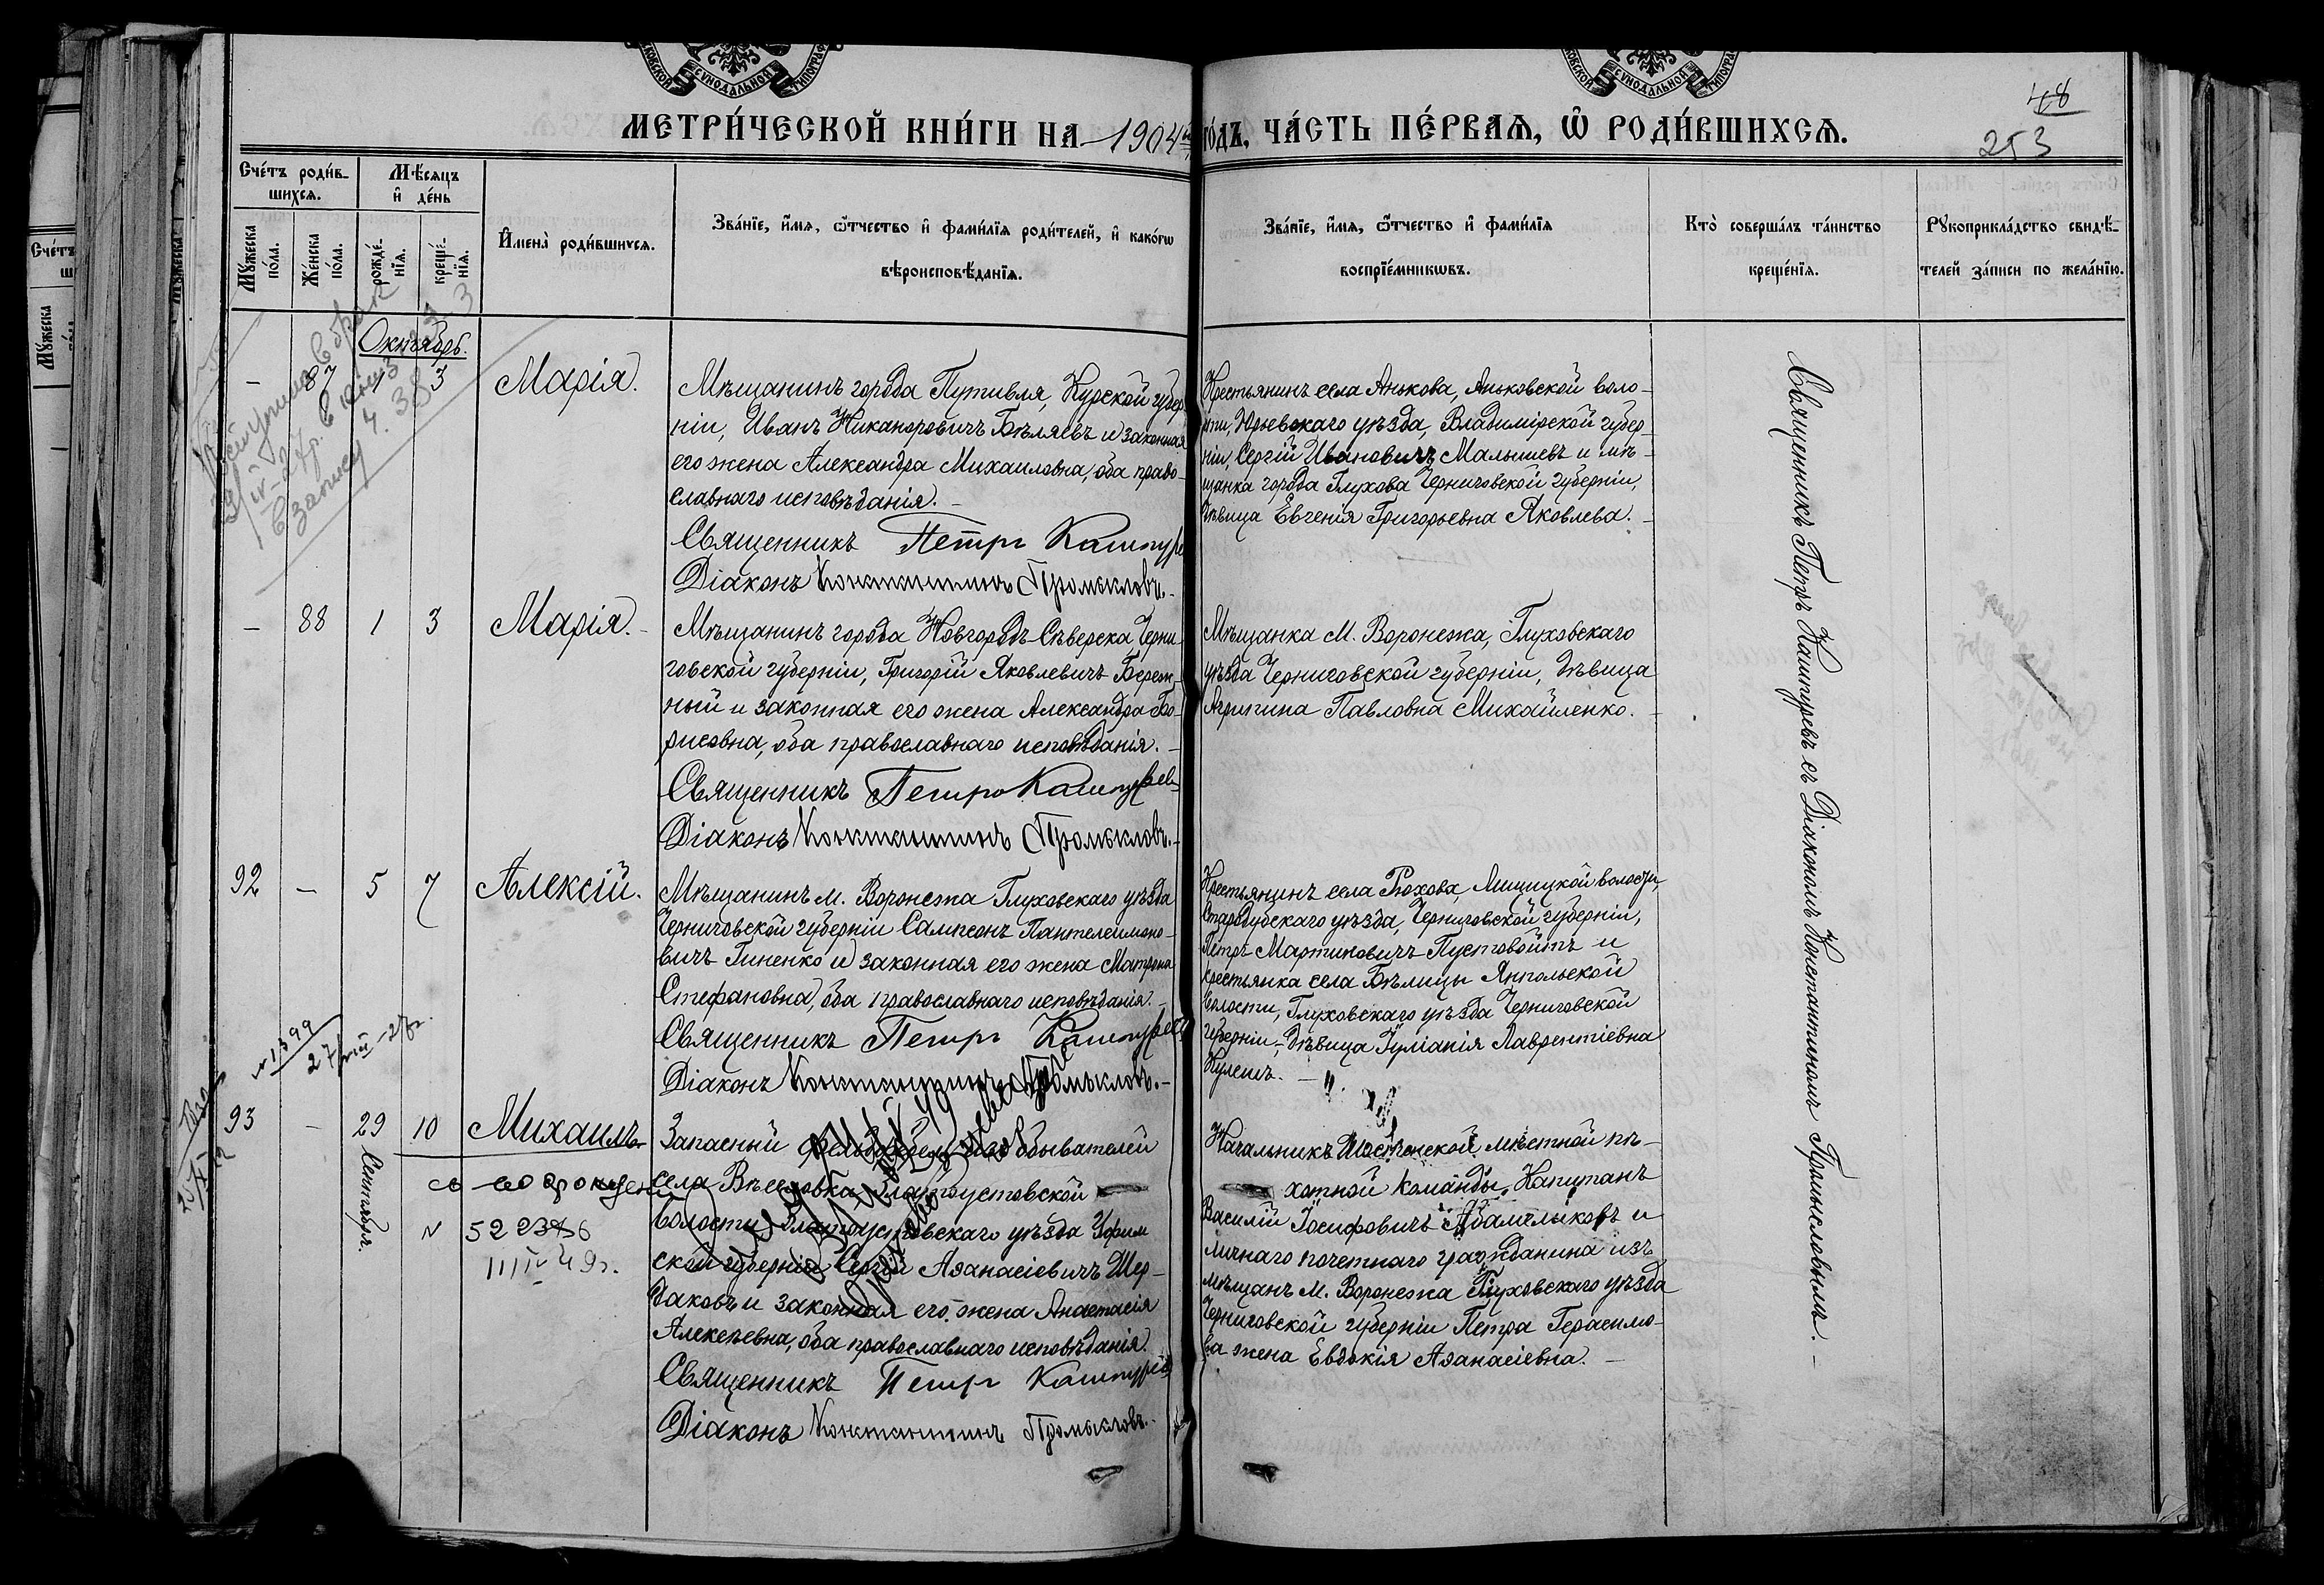 МЕТРИ́ЧЕСКОЙ КНИ́ГИ НА 1904 ГО́ДЪ, ЧА́СТЬ ПЕ́РВАЯ, Ѿ РОДИ́ВШИХСЯ.
48
253
Сче́тъ роди́в-
шихся.
Мѣ́сяцъ
и҆ де́нь
Мꙋ́жеска
по́ла.
Же́нска
по́ла.
рожде́-
нїя.
креще́-
нїя.
И҆мена̀ роди́вшихся.
Зва́нїе, и҆́мя, ѻ҆́тчество и҆ фами́лїя роди́телей, и҆ како́гѡ
вѣроисповѣ́данїя.
Зва́нїе, и҆́мя, ѻ҆́тчество и҆ фами́лїя
воспрїе́мникѡвъ.
Кто̀ соверша́лъ та́инство
креще́нїя.
Рꙋкоприкла́дство свидѣ́-
телей за́писи по жела́нїю.
Октябрь.
- 87 1 3 Марія.
Мѣщанинъ города Путивля, Курской губер-
ніи, Иванъ Никаноровичъ Бѣляевъ и законная
его жена Александра Михаиловна, оба право-
славнаго исповѣданія.-
Священникъ Петръ Кашпуревъ
Діаконъ Константинъ Промысловъ.-
Крестьянинъ села Анькова, Аньковской воло-
сти, Юрьевскаго уѣзда, Владимірской губер-
ніи, Сергій Ивановичъ Малышевъ и мѣ-
щанка города Глухова Черниговской губерніи,
дѣвица Евгенія Григорьевна Яковлева.-
- 88 1 3 Марія.-
Мѣщанинъ города Новгородъ-Сѣверска, Черни-
говской губерніи, Григорій Яковлевичъ Береж-
ный и законная его жена Александра Бо-
рисовна, оба православнаго исповѣданія.-
Священникъ Петръ Кашпуревъ
Діаконъ Константинъ Промысловъ.-
Мѣщанка м. Воронежа, Глуховскаго
уѣзда Черниговской губерніи, дѣвица
Агрипина Павловна Михайленко.-
92 - 5 7 Алексій.
Мѣщанинъ м. Воронежа Глуховскаго уѣзда
Черниговской губерніи Сампсонъ Пантелеимоно-
вичъ Гиненко и законная его жена Матрона
Стефановна, оба православнаго исповѣданія.-
Священникъ Петръ Кашпуревъ
Діаконъ Константинъ Промысловъ.-
Крестьянинъ села Рохова, волости,
Стародубскаго уѣзда, Черниговской губерніи,
Петръ Мартиновичъ Пустовойтъ и
крестьянка села Бѣлицы Янпольской
волости, Глуховскаго уѣзда Черниговской
губерніи,- дѣвица Іуліанія Лаврентіевна
Кулешъ.-
93 - 29 10 Михаилъ.
Сентября.
Запасный фельдфебель изъ обывателей
села Веселовка Златоустовской
волости Златоустовскаго уѣзда Уфим
ской губерніи Сергій Аѳанасіевичъ Щер-
баковъ и законная его жена Анастасія
Алексѣевна, оба православнаго исповѣданія.
Священникъ Петръ Кашпуревъ
Діаконъ Константинъ Промысловъ.-
Начальникъ Шостенской мѣстной пѣ-
хотной команды, Капитанъ
Василій Іосифовичъ Абамелыковъ и
личнаго почетнаго гражданина изъ
мѣщанъ м. Воронежа Глуховскаго уѣзда
Черниговской губерніи Петра Герасимо-
ва жена Евдокія Аѳанасіевна.-
Священникъ Петръ Кашпуревъ съ Діакономъ Константиномъ Промысловымъ.-